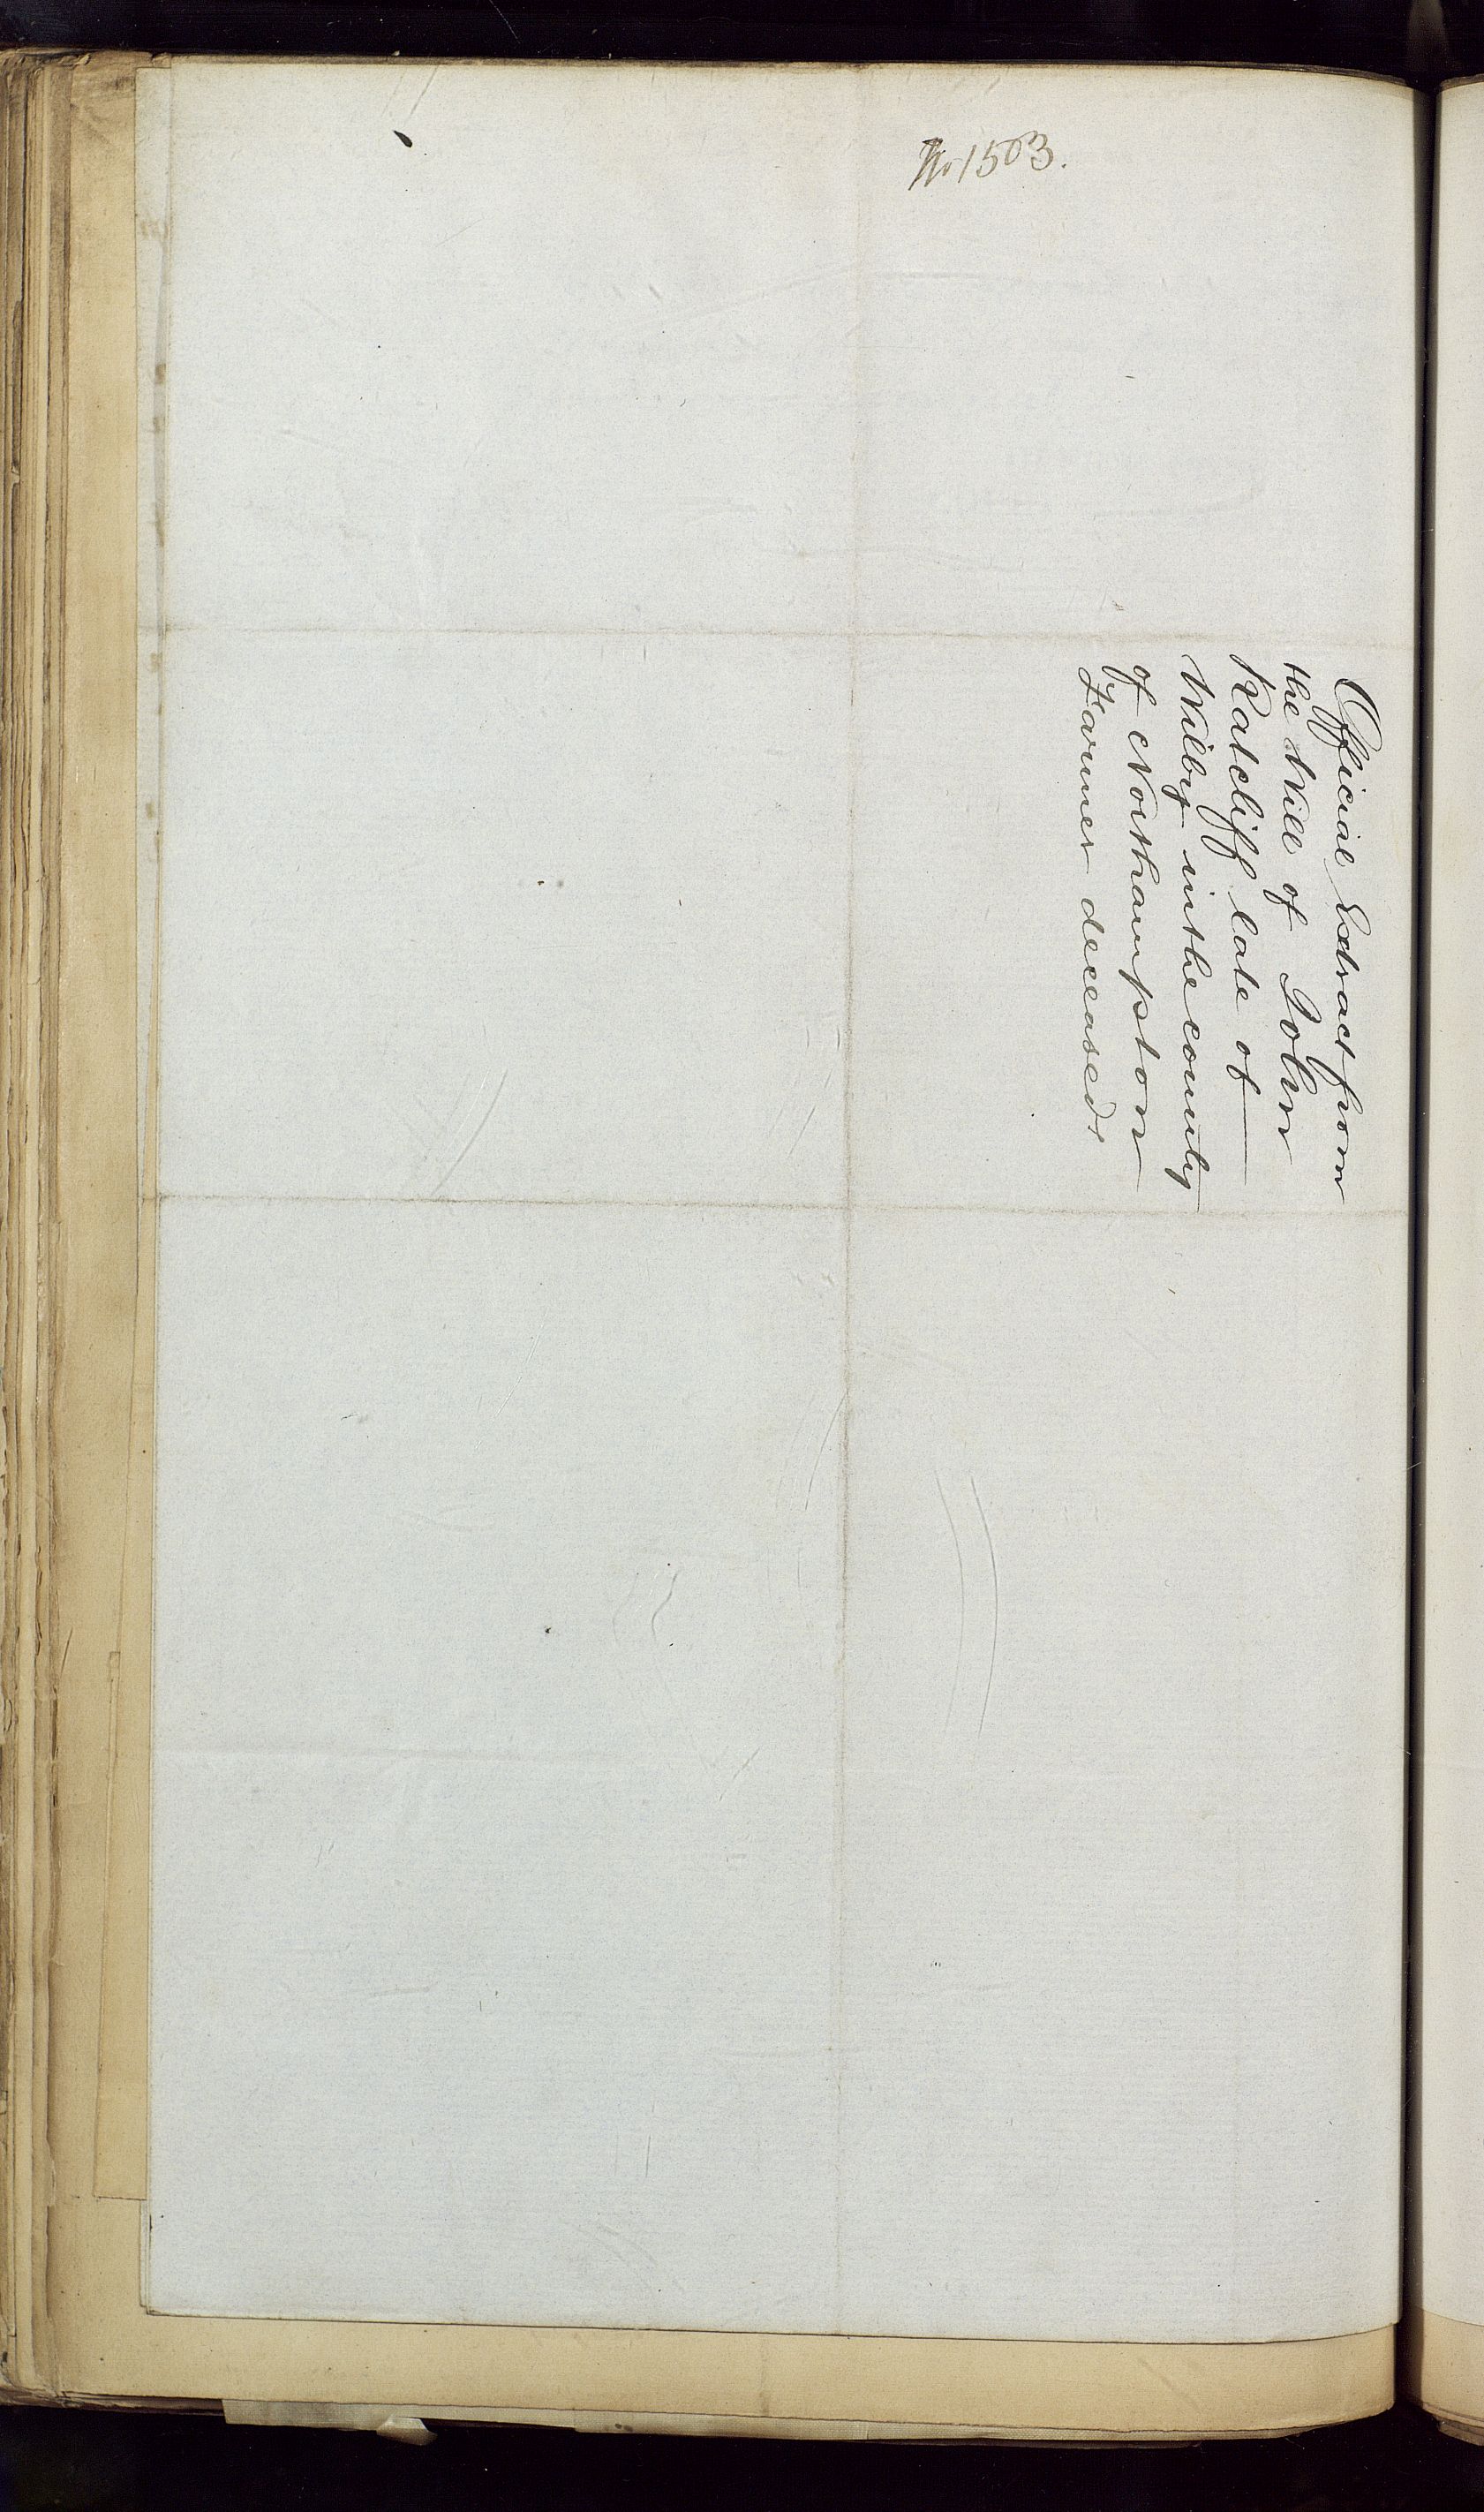 No 1503.
Official Extract from
the Will of John
Ratcliff late of
Wilby in the county
of Northampton
Farmer deceased